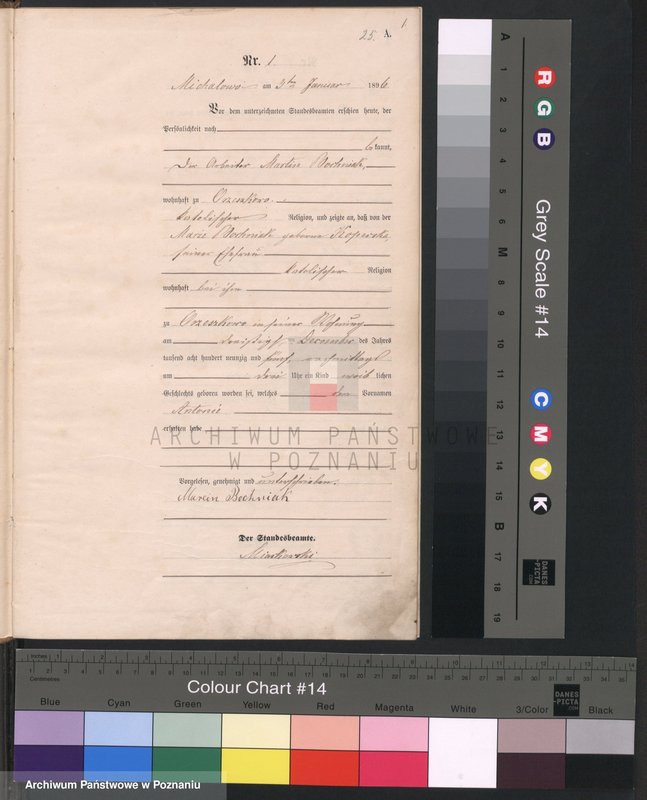 25.
1
A.
Nr. 1
Michalowo am 3ten Januar 1896
Vor dem unterzeichneten Standesbeamten erschien heute, der
Persönlichkeit nach
bekannt,
Der Arbeiter Martin Bochniak,
wohnhaft zu Orzeszkowo
katolischer Religion, und zeigte an, daß von der
Marie Bochniak geborene
seiner Ehefrau
katolischer Religion
wohnhaft bei ihm
zu Orzeszkowo in seiner Wohnung
am dreißigsten December des Jahres
tausend acht hundert neunzig und fünf, nachmittags
um drei Uhr ein Kind weiblichen
Geschlechts geboren worden sei, welches den Vornamen
Antonie
erhalten habe
Vorgelesen, genehmigt und unterschrieben.
Marcin Bochniak
Der Standesbeamte.
ARCHIWUM PAŃSTWOWE
W POZNANIU
A 1 2 3 4 5 6 M 8 9 10 11 12 13 14 15 B 17 18 19
R G B
Grey Scale #14
C M Y K
DANES
-PICTA
.COM
Inches
Centimetres
Colour Chart #14
DANES
-PICTA
.COM
Blue Cyan Green Yellow Red Magenta White 3/Color Black
Archiwum Państwowe w Poznaniu